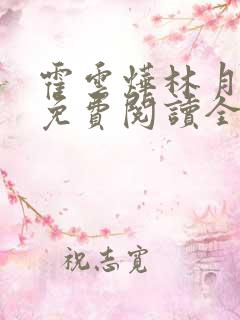 霍雲燁林月
免費閱讀全
祝志寬